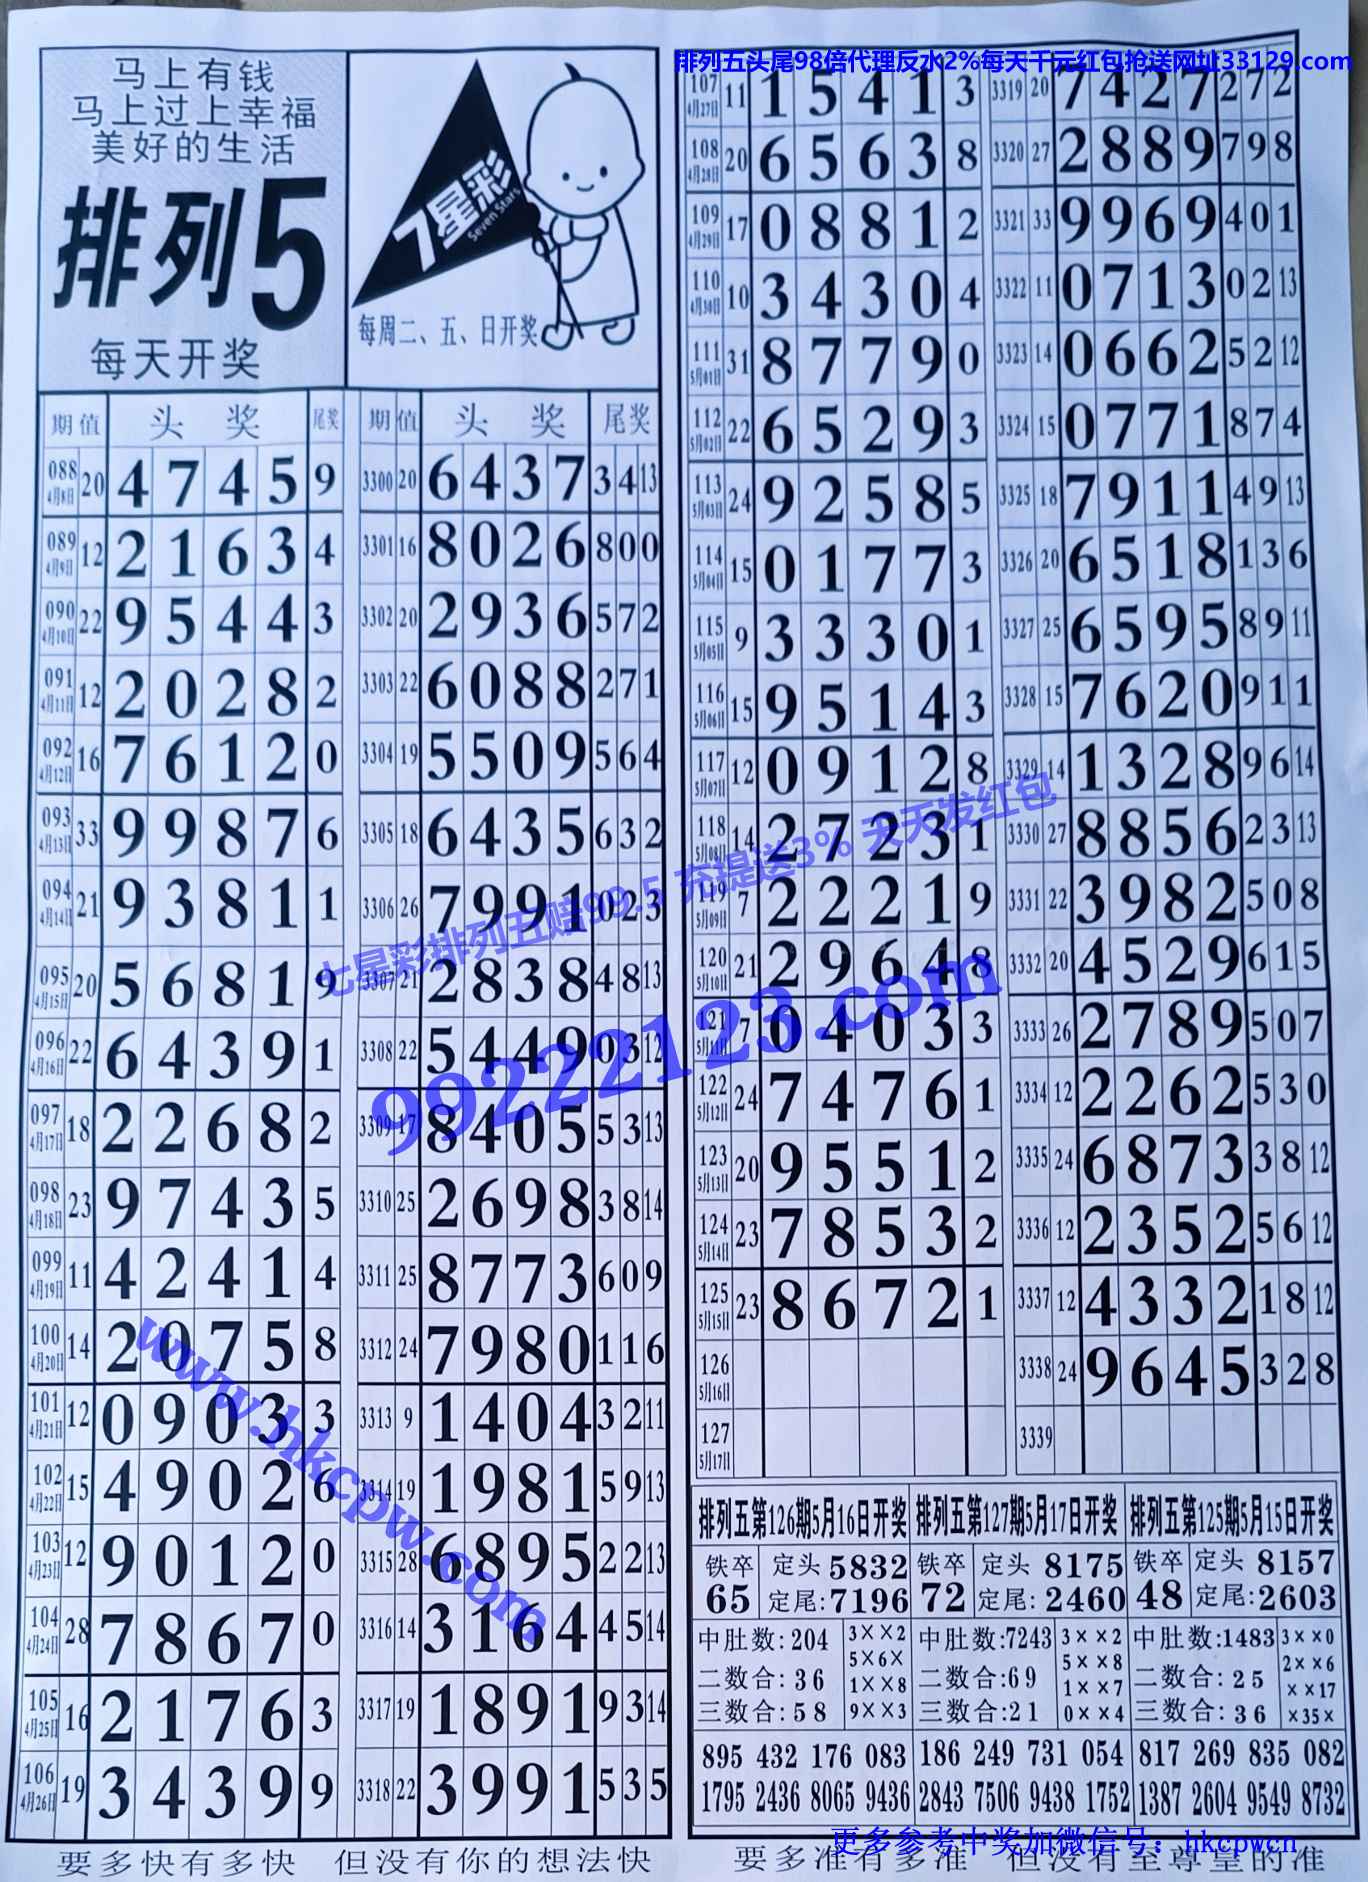 排列五头尾98倍代理反水2%每天千元红包抢送网址33129.com
马上有钱
马上过上幸福
美好的生活
排列5
每天开奖
7星彩
Seven Stars
每周二、五、日开奖
期 值 头 奖 尾奖 期 值 头 奖 尾奖
088 4月8日 20 4 7 4 5 9 3300 20 6 4 3 7 3 4 13
089 4月9日 12 2 1 6 3 4 3301 16 8 0 2 6 8 0 0
090 4月10日 22 9 5 4 4 3 3302 20 2 9 3 6 5 7 2
091 4月11日 12 2 0 2 8 2 3303 22 6 0 8 8 2 7 1
092 4月12日 16 7 6 1 2 0 3304 19 5 5 0 9 5 6 4
093 4月13日 33 9 9 8 7 6 3305 18 6 4 3 5 6 3 2
094 4月14日 21 9 3 8 1 1 3306 26 7 9 9 1 0 2 3
095 4月15日 20 5 6 8 1 9 3307 21 2 8 3 8 4 8 13
096 4月16日 22 6 4 3 9 1 3308 22 5 4 4 9 0 3 12
097 4月17日 18 2 2 6 8 2 3309 17 8 4 0 5 5 3 13
098 4月18日 23 9 7 4 3 5 3310 25 2 6 9 8 3 8 14
099 4月19日 11 4 2 4 1 4 3311 25 8 7 7 3 6 0 9
100 4月20日 14 2 0 7 5 8 3312 24 7 9 8 0 1 1 6
101 4月21日 12 0 9 0 3 3 3313 9 1 4 0 4 3 2 11
102 4月22日 15 4 9 0 2 6 3314 19 1 9 8 1 5 9 13
103 4月23日 12 9 0 1 2 0 3315 28 6 8 9 5 2 2 13
104 4月24日 28 7 8 6 7 0 3316 14 3 1 6 4 4 5 14
105 4月25日 16 2 1 7 6 3 3317 19 1 8 9 1 9 3 14
106 4月26日 19 3 4 3 9 9 3318 22 3 9 9 1 5 3 5
107 4月27日 11 1 5 4 1 3 3319 20 7 4 2 7 2 7 2
108 4月28日 20 6 5 6 3 8 3320 27 2 8 8 9 7 9 8
109 4月29日 17 0 8 8 1 2 3321 33 9 9 6 9 4 0 1
110 4月30日 10 3 4 3 0 4 3322 11 0 7 1 3 0 2 13
111 5月01日 31 8 7 7 9 0 3323 14 0 6 6 2 5 2 12
112 5月02日 22 6 5 2 9 3 3324 15 0 7 7 1 8 7 4
113 5月03日 24 9 2 5 8 5 3325 18 7 9 1 1 4 9 13
114 5月04日 15 0 1 7 7 3 3326 20 6 5 1 8 1 3 6
115 5月05日 9 3 3 3 0 1 3327 25 6 5 9 5 8 9 11
116 5月06日 15 9 5 1 4 3 3328 15 7 6 2 0 9 1 1
117 5月07日 12 0 9 1 2 8 3329 14 1 3 2 8 9 6 14
118 5月08日 14 2 7 2 3 1 3330 27 8 8 5 6 2 3 13
119 5月09日 7 2 2 2 1 9 3331 22 3 9 8 2 5 0 8
120 5月10日 21 2 9 6 4 8 3332 20 4 5 2 9 6 1 5
121 5月11日 7 0 4 0 3 3 3333 26 2 7 8 9 5 0 7
122 5月12日 24 7 4 7 6 1 3334 12 2 2 6 2 5 3 0
123 5月13日 20 9 5 5 1 2 3335 24 6 8 7 3 3 8 12
124 5月14日 23 7 8 5 3 2 3336 12 2 3 5 2 5 6 12
125 5月15日 23 8 6 7 2 1 3337 12 4 3 3 2 1 8 12
126 5月16日 3338 24 9 6 4 5 3 2 8
127 5月17日 3339
七星彩排列五赔99.5 充提送3% 天天发红包
99222123.com
www.hkcpw.com
排列五第126期5月16日开奖 排列五第127期5月17日开奖 排列五第125期5月15日开奖
铁卒 定头 5832 铁卒 定头 8175 铁卒 定头 8157
65 定尾:7196 72 定尾:2460 48 定尾:2603
中肚数:204 3××2 中肚数:7243 3××2 中肚数:1483 3××0
5×6× 5××8 2××6
二数合:36 1××8 二数合:69 1××7 二数合:25 ××17
三数合:58 9××3 三数合:21 0××4 三数合:36 ×35×
895 432 176 083 186 249 731 054 817 269 835 082
1795 2436 8065 9436 2843 7506 9438 1752 1387 2604 9549 8732
更多参考中奖加微信号：hkcpwcn
要多快有多快 但没有你的想法快 要多准有多准 但没有至尊皇的准